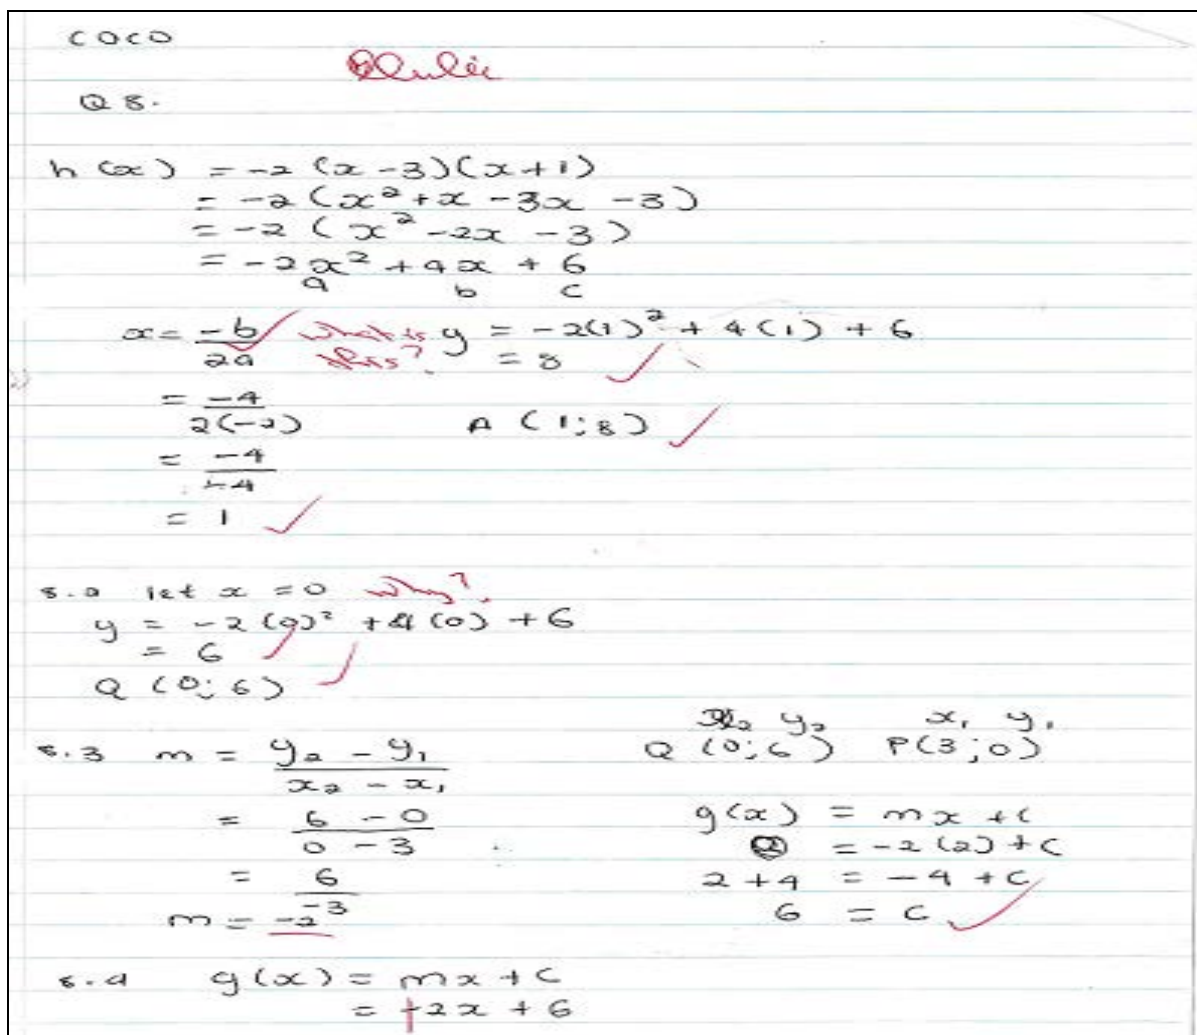 COCO
Q 8.
h(x) = -2(x-3)(x+1)
= -2(x² + x - 3x - 3)
= -2(x² - 2x - 3)
= -2x² + 4x + 6
a b c
x = -b/2a What is this? y = -2(1)² + 4(1) + 6
= 8
= -4/2(-2) A (1;8)
= -4/-4
= 1
8.2 let x = 0 Why?
y = -2(0)² + 4(0) + 6
= 6
Q (0;6)
x₂ y₂ x₁ y₁
8.3 m = y₂ - y₁/x₂ - x₁ Q (0;6) P(3;0)
= 6 - 0/0 - 3 g(x) = mx + c
= -2(2) + c
= 6/-3 2 + 4 = -4 + c
m = -2 6 = c
8.4 g(x) = mx + c
= -2x + 6